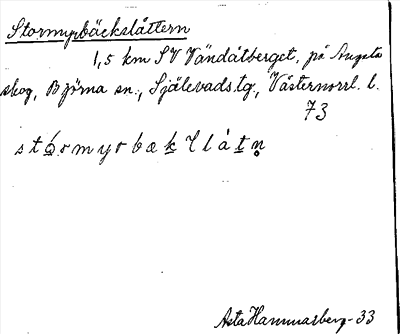 Stormyrbäckslåttern
1,5 km SV Vändåtberget, på Augsta
skog, Björna sn., Själevads tg., Västernorrl. l.
73
stórmyrbækllåtn
Asta Hammarberg - 33